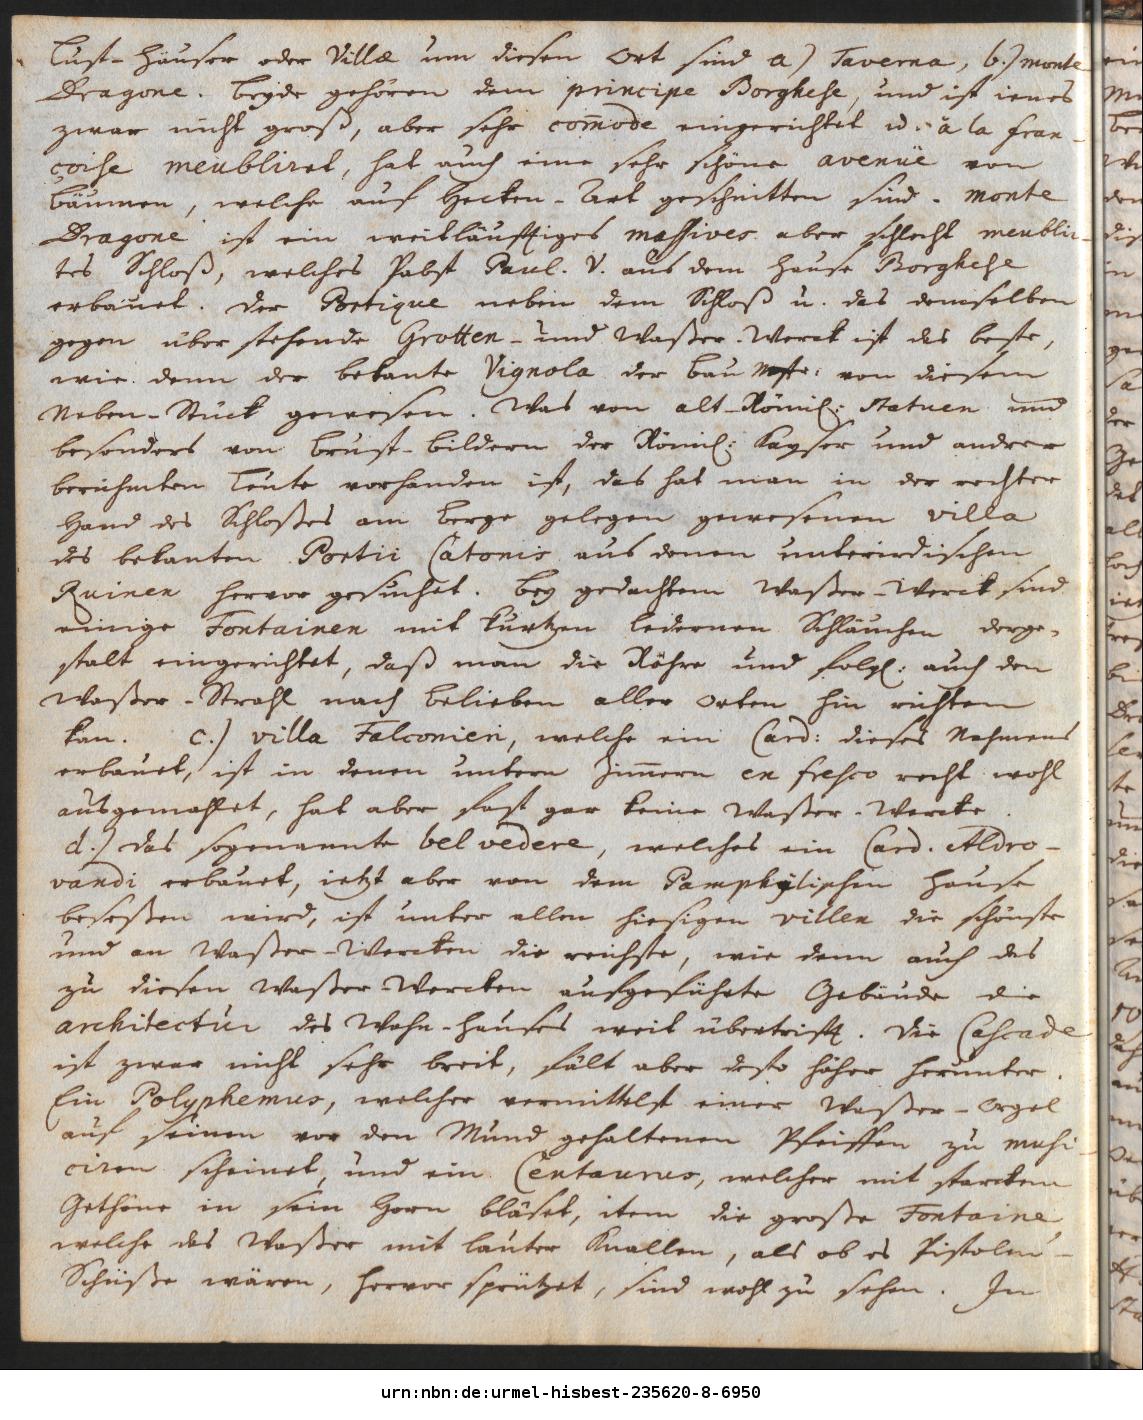 Lust-Häuser oder Villæ um diesen Ort sind a) Taverna, b.) monte
Dragone. Beyde gehören dem principe Borghese, und ist ienes
zwar nicht groß, aber sehr com̅ode eingerichtet u. à la fran-
çoise meubliret, hat auch eine sehr schöne avenüe von
Bäumen, welche auf Hecken-Art geschnitten sind. Monte
Dragone ist ein weitläufftiges massives aber schlecht meublir-
tes Schloß, welches Pabst Paul. V. aus dem Hause Borghese
erbauet. Der Portique neben dem Schloß u. das demselben
gegen über stehende Grotten- und Waßer-Werck ist das beste,
wie denn der bekante Vignola der Bau Mstr: von diesem
Neben-Stück gewesen. Was von alt-Römis: Statuen und
besonders von Brust-Bildern der Römis: Kayser und andrer
berühmten Leute vorhanden ist, das hat man in der rechter
Hand des Schloßes am Berge gelegen gewesenen villa
des bekanten Portii Catonis aus denen unterirdischen
Ruinen hervor gesuchet. Bey gedachtem Waßer-Werck sind
einige Fontainen mit kurtzen ledernen Schläuchen derge-
stalt eingerichtet, daß man die Röhre und folgl: auch den
Waßer-Strahl nach Belieben aller Orten hin richten
kan. c.) villa Falconieri, welche ein Card: dieses Nahmens
erbauet, ist in denen untern Zim̅ern en fresco recht wohl
ausgemahlet, hat aber fast gar keine Waßer-Wercke.
d.) Das sogenannte bel vedere, welches ein Card. Aldro-
vandi erbauet, ietzt aber von dem Pamphylischen Hause
beseßen wird, ist unter allen hiesigen villen die schönste
und an Waßer-Wercken die reichste, wie denn auch das
zu diesen Waßer-Wercken aufgeführte Gebäude die
architectur des Wohn-Hauses weit übertrifft. Die Cascade
ist zwar nicht sehr breit, fält aber desto höher herunter.
Ein Polyphemus, welcher vermittelst einer Waßer-Orgel
auf seinen vor den Mund gehaltenen Pfeiffen zu musi-
ciren scheinet, und ein Centaurus, welcher mit starckem
Gethöne in sein Horn bläset, item die große Fontaine
welche das Waßer mit lauter Knallen, als ob es Pistolen-
Schüße wären, hervor sprützet, sind wohl zu sehen. In
urn:nbn:de:urmel-hisbest-235620-8-6950